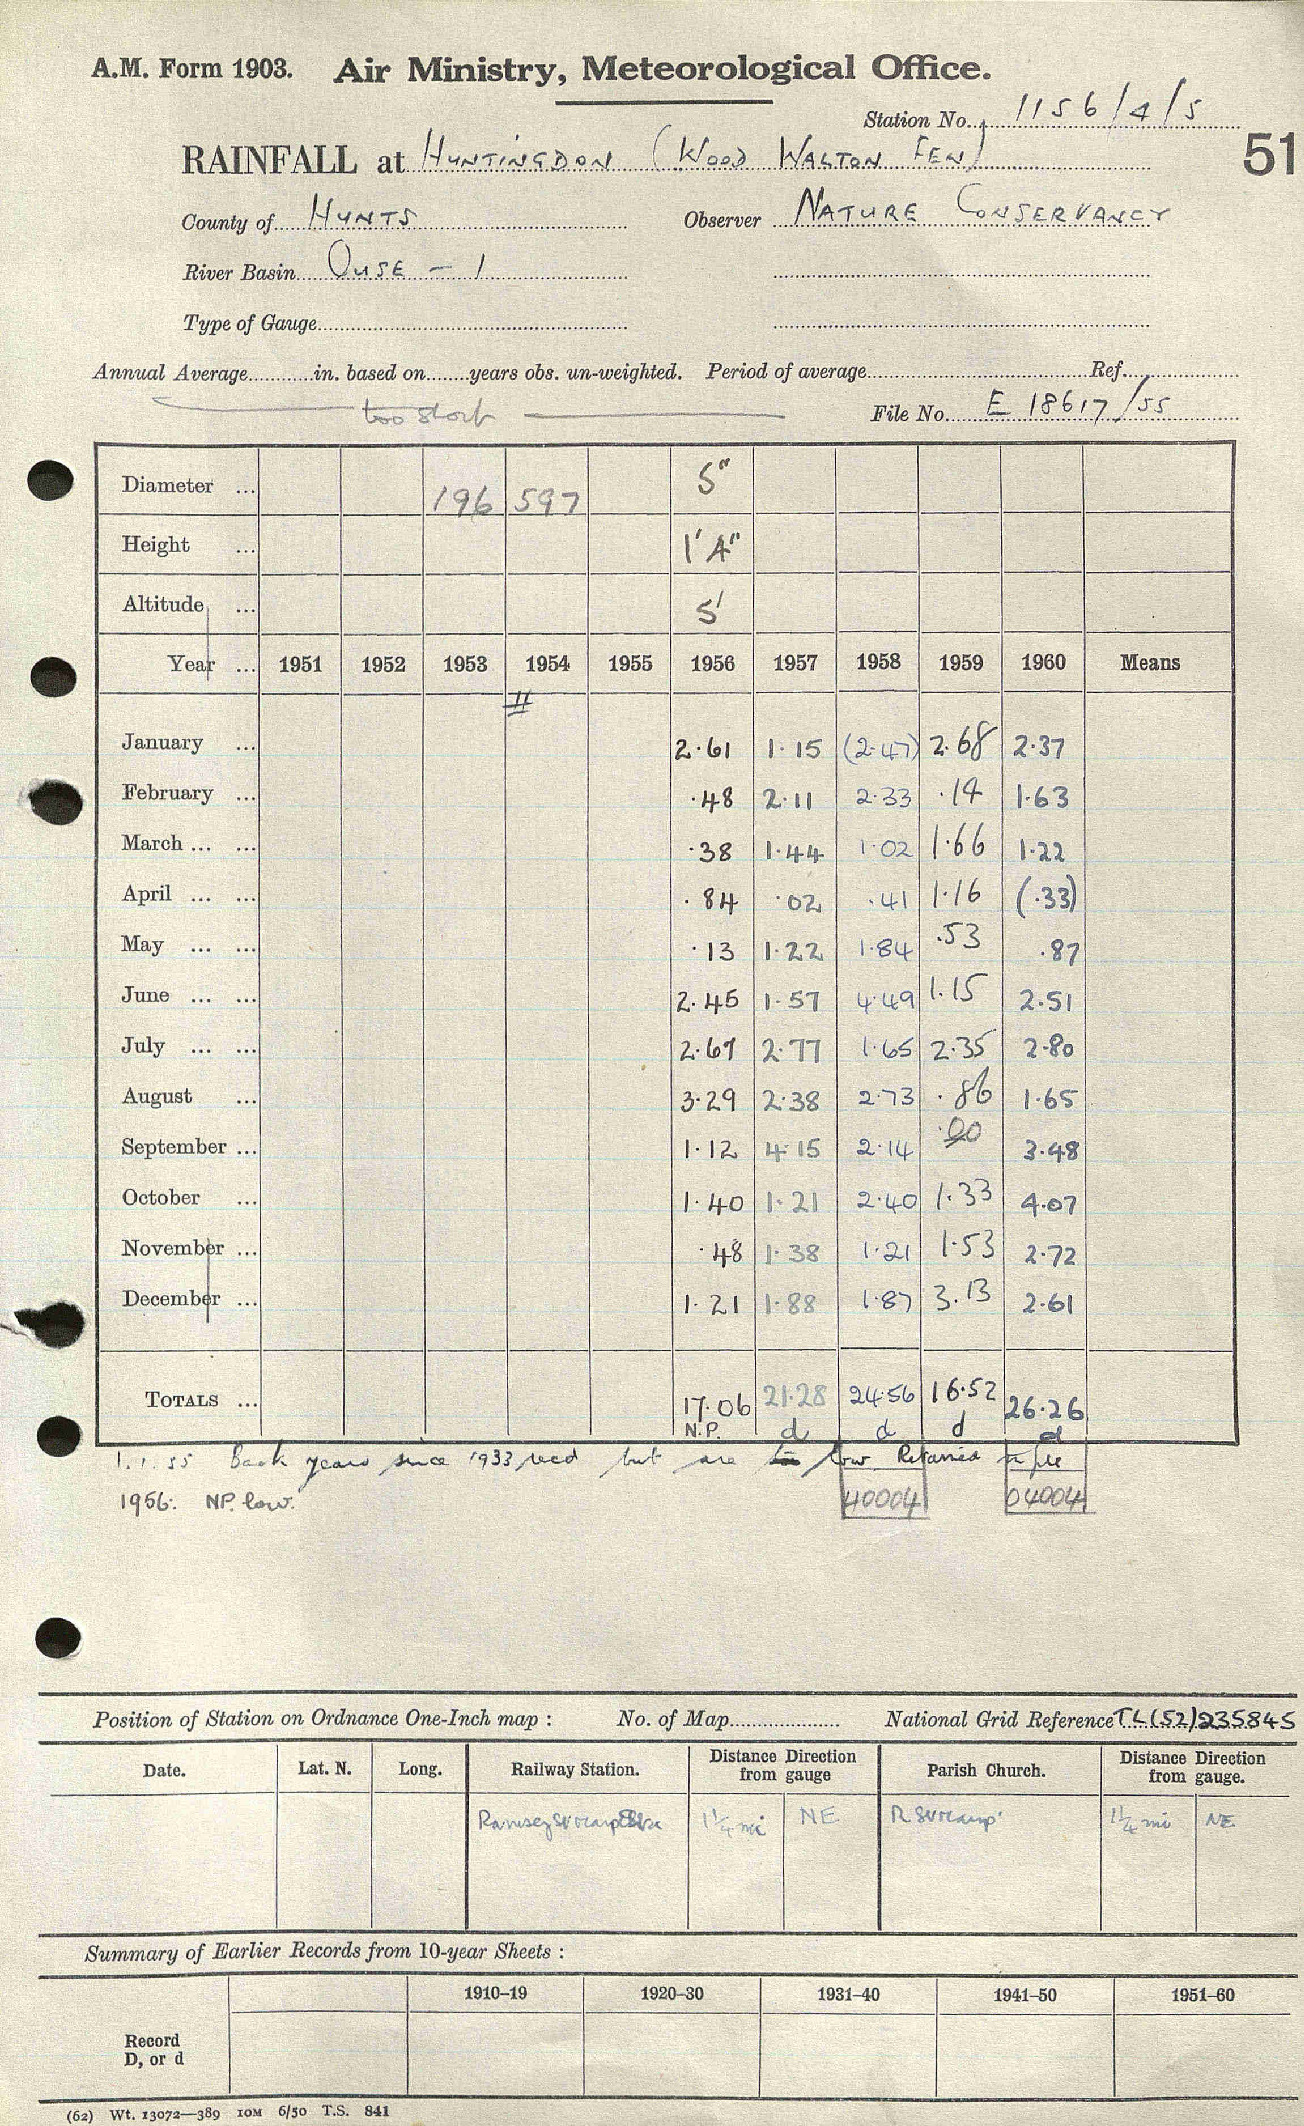 A.M. Form 1903. Air Ministry, Meteorological Office.
Station No. 1156/4/5
RAINFALL at HUNTINGDON (WOOD WALTON FEN) 51
County of HUNTS Observer NATURE CONSERVANCY
River Basin OUSE - 1
Type of Gauge
Annual Average in. based on years obs. un-weighted. Period of average Ref.
too short File No. E 18617/55
Diameter ... 196 597 5"
Height ... 1' A"
Altitude ... 5'
Year ... 1951 1952 1953 1954 1955 1956 1957 1958 1959 1960 Means
January ... 2.61 1.15 (2.47) 2.68 2.37
February ... .48 2.11 2.33 .14 1.63
March ... ... .38 1.44 1.02 1.66 1.22
April ... ... .84 .02 .41 1.16 (.33)
May ... ... .13 1.22 1.84 .53 .87
June ... ... 2.45 1.57 4.49 1.15 2.51
July ... ... 2.67 2.77 1.65 2.35 2.80
August ... 3.29 2.38 2.73 .86 1.65
September ... 1.12 4.15 2.14 .00 3.48
October ... 1.40 1.21 2.40 1.33 4.07
November ... .48 1.38 1.21 1.53 2.72
December ... 1.21 1.88 1.87 3.13 2.61
TOTALS ... 17.06 21.28 24.56 16.52 26.26
N.P. d d d d
1.1.55 Back years since 1933 recd but are too low Returned to file
1956. NP. low. 40004 04004
Position of Station on Ordnance One-Inch map : No. of Map National Grid Reference TL(52)235845
Date. Lat. N. Long. Railway Station. Distance Direction from gauge Parish Church. Distance Direction from gauge.
1¼ mi NE 1¼ mi NE
Summary of Earlier Records from 10-year Sheets :
1910–19 1920–30 1931–40 1941–50 1951–60
Record
D, or d
(62) Wt. 13072—389 10M 6/50 T.S. 841